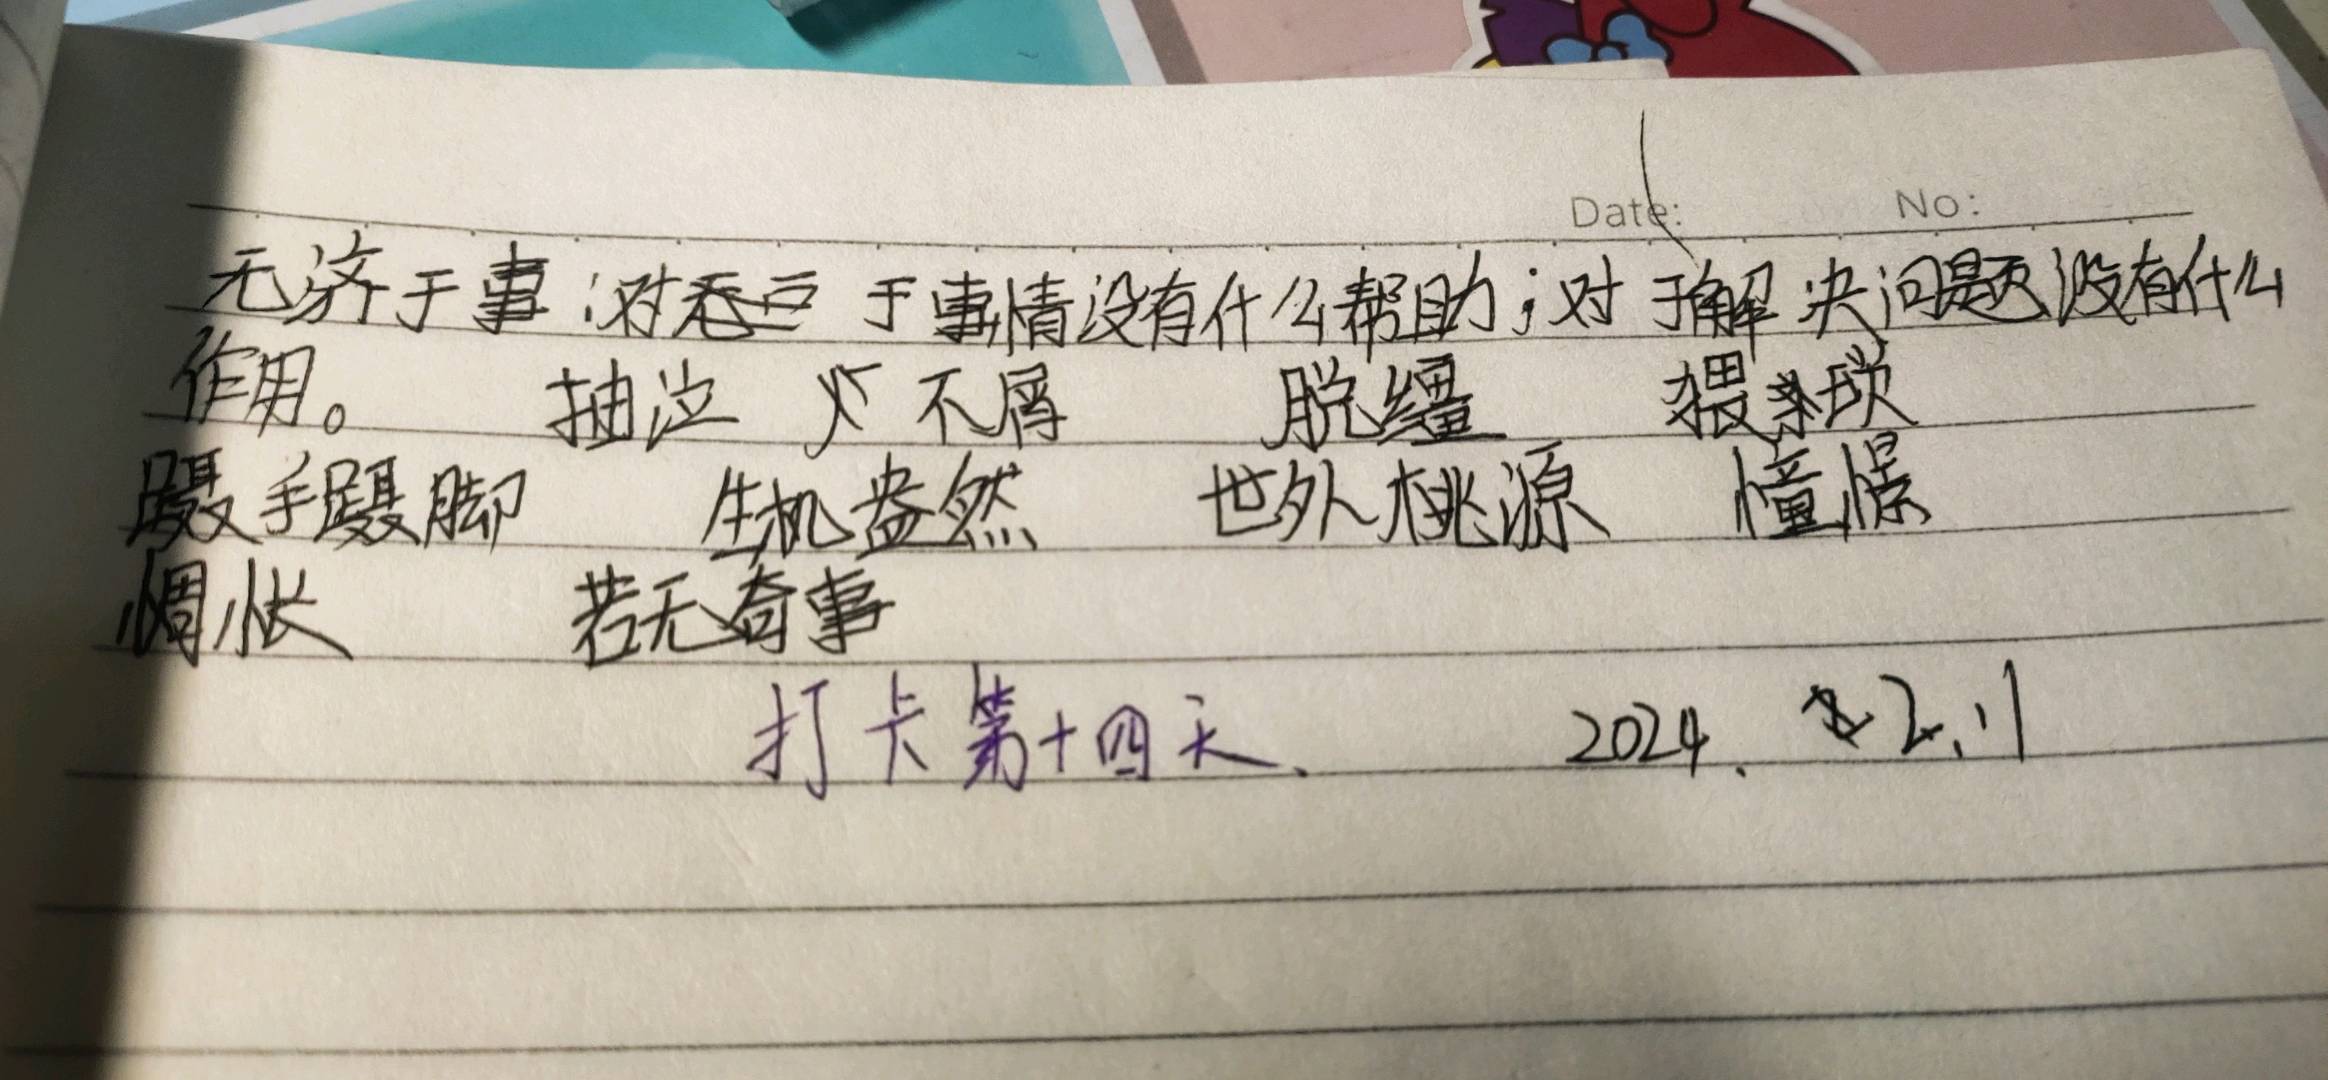 Date: No:
无济于事:对于事情没有什么帮助;对于解决问题没有什么
作用。 抽泣 不屑 脱缰 猥琐
蹑手蹑脚 生机盎然 世外桃源 憧憬
惆怅 若无奇事
打卡第十四天. 2024. 2.11